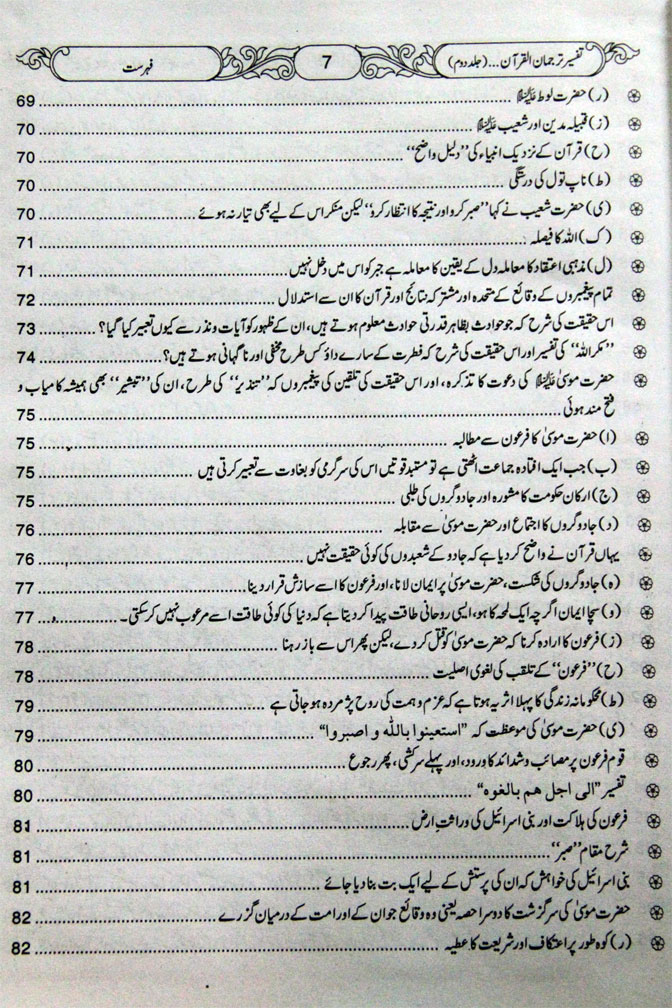 تفسیر ترجمان القرآن...(جلد دوم) 7 فہرست
(ر) حضرت لوط علیہ السلام ........ 69
(ز) قبیلہ مدین اور شعیب علیہ السلام ........ 70
(ح) قرآن کے نزدیک انبیاء کی "دلیل واضح" ........ 70
(ط) ناپ تول کی درستگی ........ 70
(ی) حضرت شعیب نے کہا "صبر کرو اور نتیجہ کا انتظار کرو" لیکن منکر اس کے لیے بھی تیار نہ ہوئے ........ 70
(ک) اللہ کا فیصلہ ........ 71
(ل) مذہبی اعتقاد کا معاملہ دل کے یقین کا معاملہ ہے جبر کو اس میں دخل نہیں ........ 71
تمام پیغمبروں کے وقائع کے متحدہ اور مشترکہ نتائج اور قرآن کا ان سے استدلال ........ 72
اس حقیقت کی شرح کہ جو حوادث بظاہر قدرتی حوادث معلوم ہوتے ہیں، ان کے ظہور کو آیات و نذر سے کیوں تعبیر کیا گیا؟ ........ 73
"مکر اللہ" کی تفسیر اور اس حقیقت کی شرح کہ فطرت کے سارے داؤ کس طرح مخفی اور ناگہانی ہوتے ہیں؟ ........ 74
حضرت موسیٰ علیہ السلام کی دعوت کا تذکرہ، اور اس حقیقت کی تلقین کی پیغمبروں کہ "تنذیر" کی طرح، ان کی "تبشیر" بھی ہمیشہ کامیاب و
فتح مند ہوئی ........ 75
(ا) حضرت موسیٰ کا فرعون سے مطالبہ ........ 75
(ب) جب ایک افتادہ جماعت اٹھتی ہے تو مستبد قوتیں اس کی سرگرمی کو بغاوت سے تعبیر کرتی ہیں ........ 75
(ج) ارکان حکومت کا مشورہ اور جادوگروں کی طلبی ........ 75
(د) جادوگروں کا اجتماع اور حضرت موسیٰ سے مقابلہ ........ 76
یہاں قرآن نے واضح کر دیا ہے کہ جادو کے شعبدوں کی کوئی حقیقت نہیں ........ 76
(ہ) جادوگروں کی شکست، حضرت موسیٰ پر ایمان لانا، اور فرعون کا اسے سازش قرار دینا ........ 77
(و) سچا ایمان اگرچہ ایک لمحہ کا ہو، ایسی روحانی طاقت پیدا کر دیتا ہے کہ دنیا کی کوئی طاقت اسے مرعوب نہیں کر سکتی۔ ........ 77
(ز) فرعون کا ارادہ کرنا کہ حضرت موسیٰ کو قتل کر دے، لیکن پھر اس سے باز رہنا ........ 78
(ح) "فرعون" کے تلقب کی لغوی اصلیت ........ 78
(ط) محکومانہ زندگی کا پہلا اثر یہ ہوتا ہے کہ عزم و ہمت کی روح پژمردہ ہو جاتی ہے ........ 79
(ی) حضرت موسیٰ کی موعظت کہ "استعینوا باللہ و اصبروا" ........ 79
قوم فرعون پر مصائب و شدائد کا ورود، اور پہلے سرکشی، پھر رجوع ........ 80
تفسیر "الی اجل هم بالغوه" ........ 80
فرعون کی ہلاکت اور بنی اسرائیل کی وراثتِ ارض ........ 81
شرح مقام "صبر" ........ 81
بنی اسرائیل کی خواہش کہ ان کی پرستش کے لیے ایک بت بنا دیا جائے ........ 81
حضرت موسیٰ کی سرگزشت کا دوسرا حصہ یعنی وہ وقائع جو ان کے اور امت کے درمیان گزرے ........ 82
(ر) کوہ طور پر اعتکاف اور شریعت کا عطیہ ........ 82